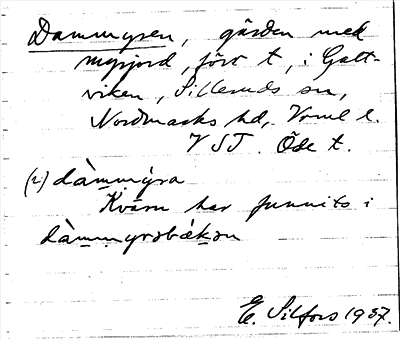 Dammyren, gården med
myrjord, förr t, i Gatt-
viken, Silleruds sn,
Nordmarks hd, Vrml l.
VSJ. Öde t.
(2) dàmmýra
Kvarn har funnits i
dàmmyrsbäkən
E. Silfors 1937.